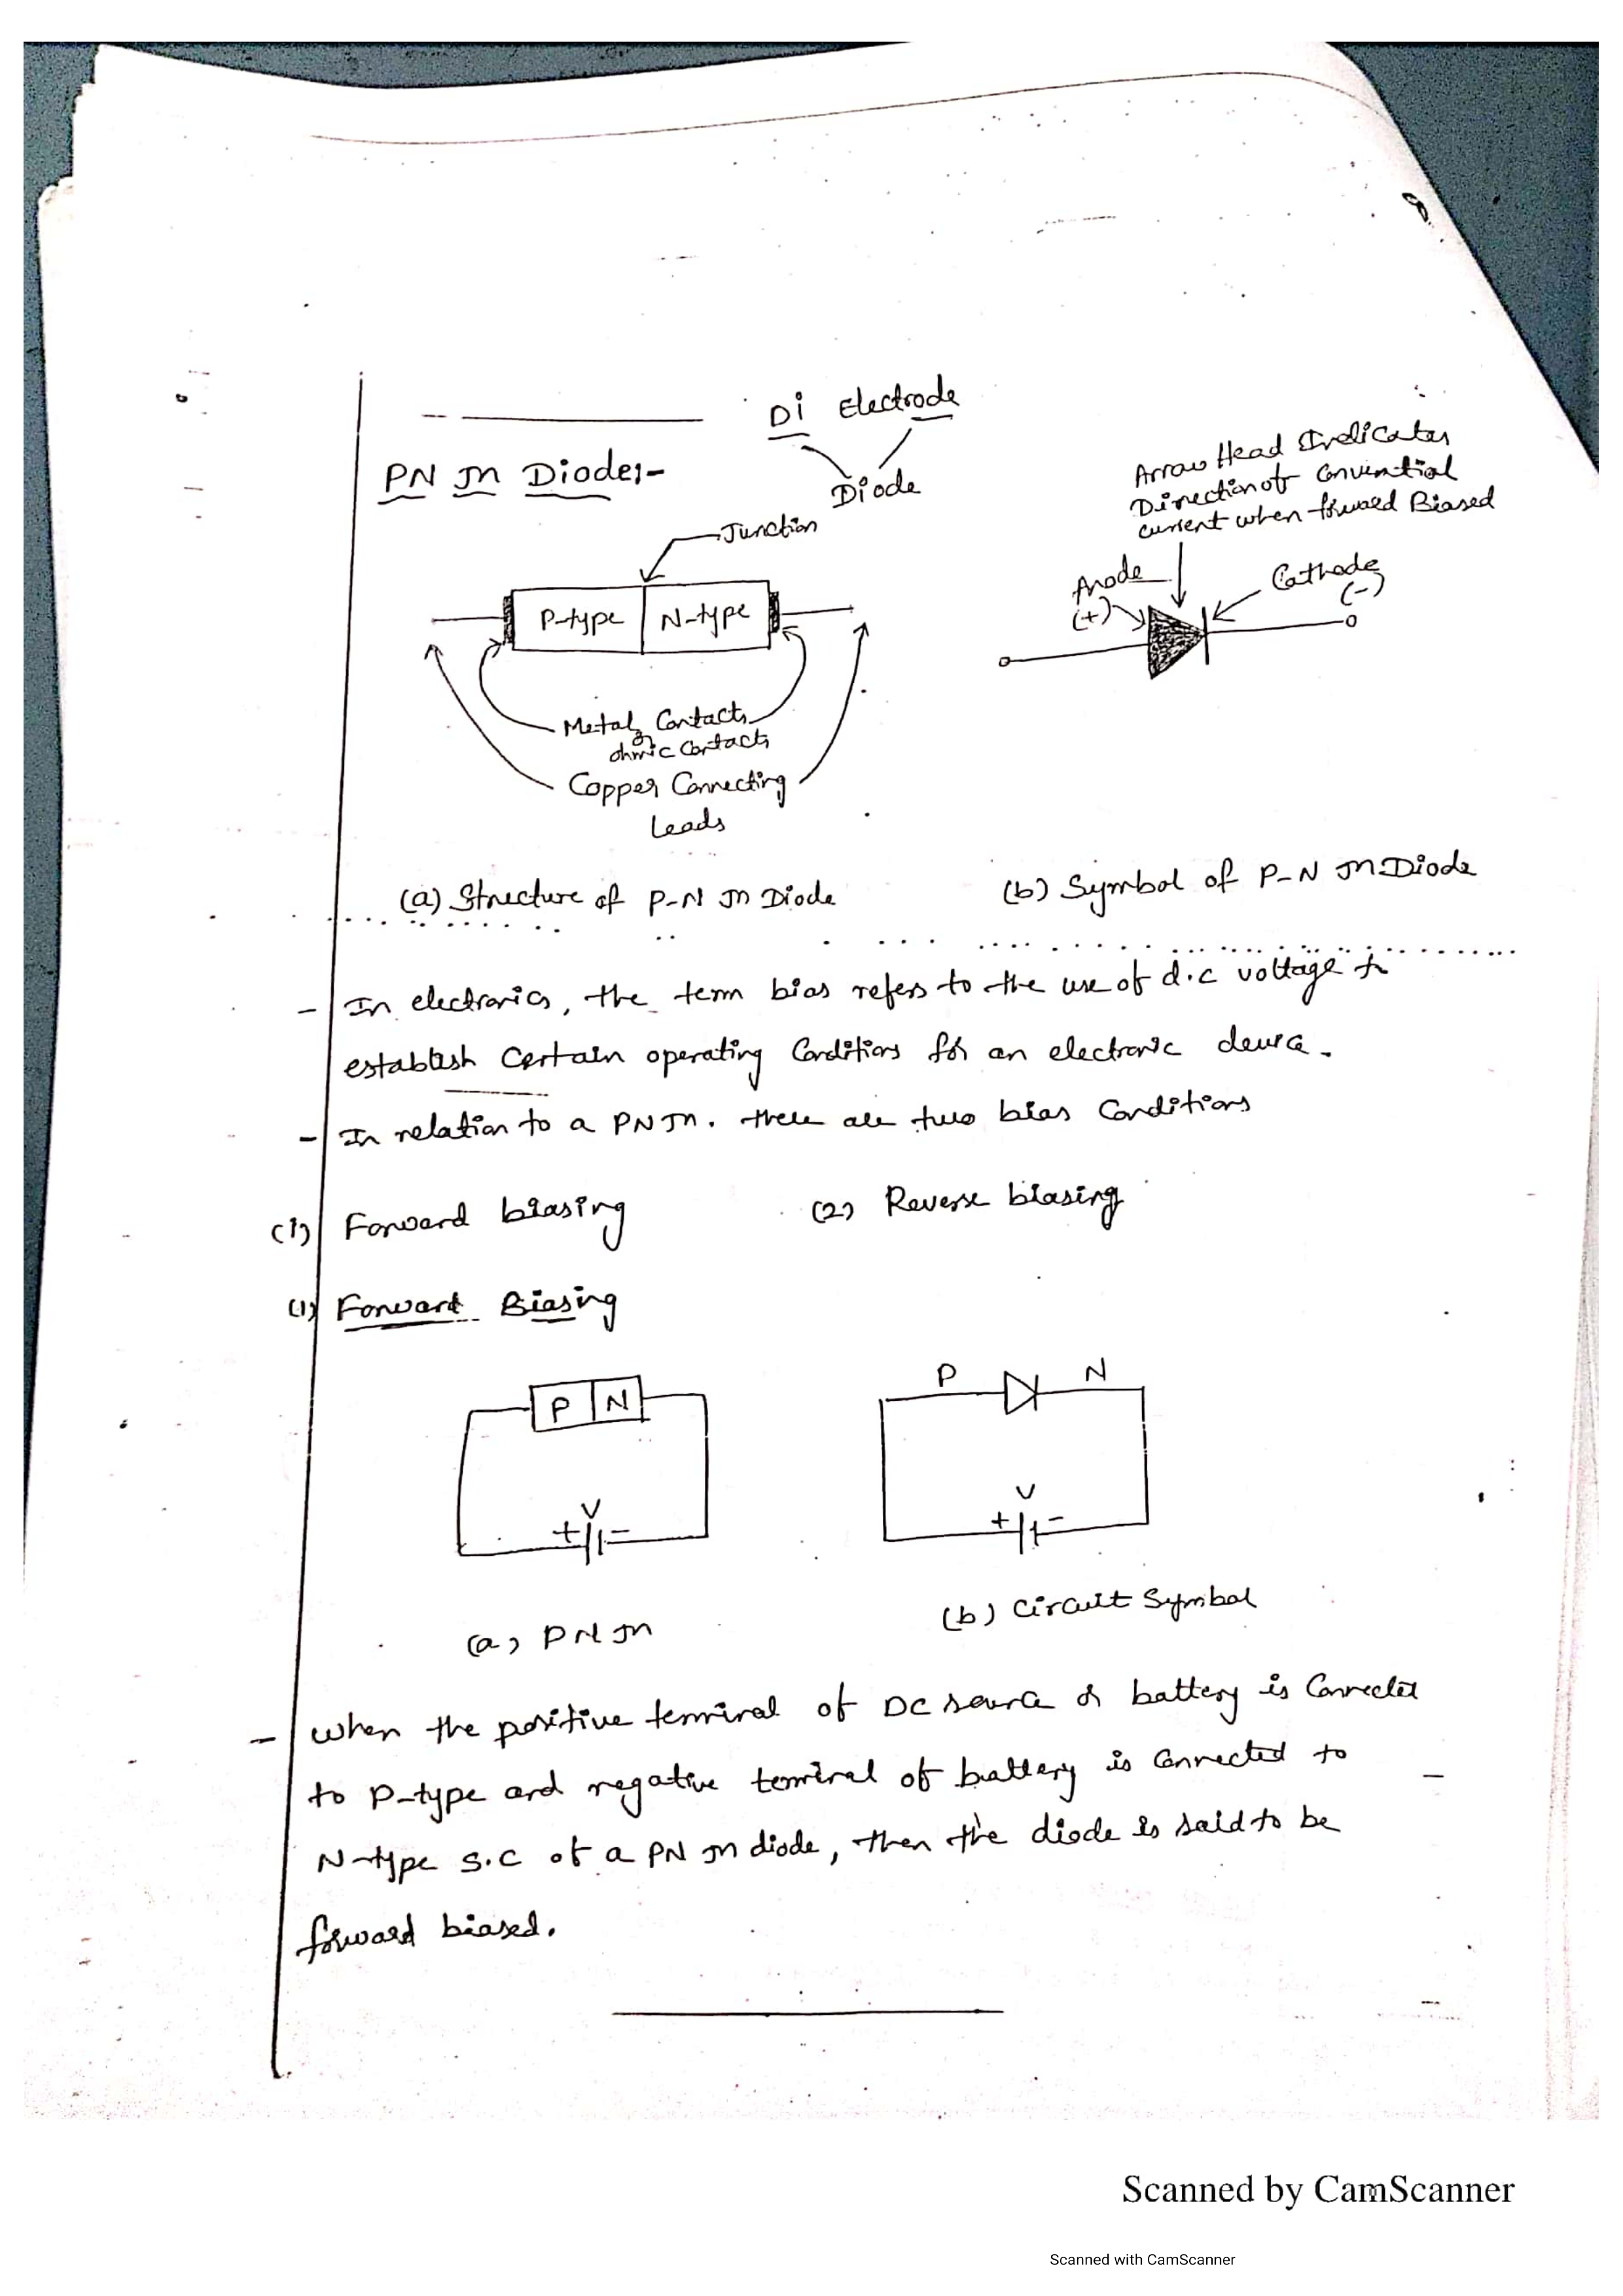 8
Di Electrode
Diode
PN Jn Diode:-
Junction
P-type N-type
Metal Contacts
or
ohmic Contacts
Copper Connecting
Leads
Arrow Head Indicates
Direction of Convintial
current when forward Biased
Anode
(+)
Cathode
(-)
(a) Structure of P-N Jn Diode
(b) Symbol of P-N Jn Diode
- In electronics, the term bias refers to the use of d.c voltage to
establish certain operating Conditions for an electronic device.
- In relation to a PN Jn. there are two bias Conditions
(1) Forward biasing (2) Reverse biasing
(1) Forward Biasing
P N
V
+ -
P N
V
+ -
(a) PN Jn
(b) Circuit Symbol
- When the positive terminal of DC source or battery is Connected
to P-type and negative terminal of battery is Connected to
N-type S.C of a PN Jn diode, then the diode is said to be
forward biased.
Scanned by CamScanner
Scanned with CamScanner